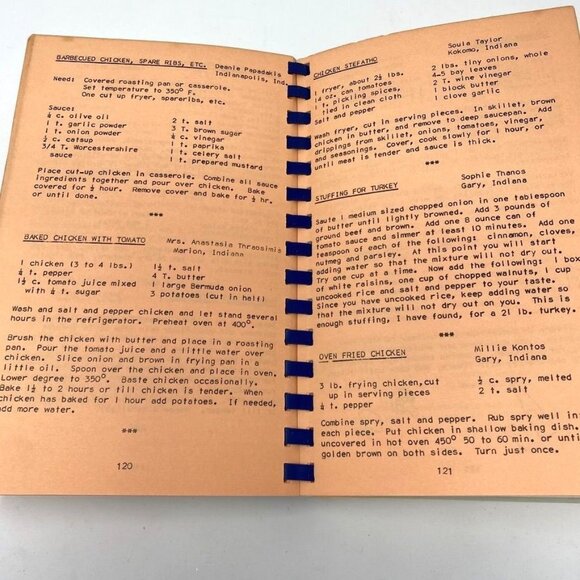 BARBECUED CHICKEN, SPARE RIBS, ETC. Deanie Papadakis
Indianapolis, Ind.
Need: Covered roasting pan or casserole.
Set temperature to 350° F.
One cut up fryer, spareribs, etc.
Sauce:
½ c. olive oil 2 t. salt
1 t. garlic powder 3 T. brown sugar
1 t. onion powder ½ c. vinegar
½ c. catsup 1 t. paprika
3/4 T. Worcestershire 1 t. celery salt
sauce 1 t. prepared mustard
Place cut-up chicken in casserole. Combine all sauce
ingredients together and pour over chicken. Bake
covered for ½ hour. Remove cover and bake for ½ hr.
or until done.
***
BAKED CHICKEN WITH TOMATO Mrs. Anastasia Thraosimis
Marion, Indiana
1 chicken (3 to 4 lbs.) 1½ t. salt
¼ t. pepper 4 T. butter
1½ c. tomato juice mixed 1 large Bermuda onion
with ½ t. sugar 3 potatoes (cut in half)
Wash and salt and pepper chicken and let stand several
hours in the refrigerator. Preheat oven at 400°.
Brush the chicken with butter and place in a roasting
pan. Pour the tomato juice and a little water over
chicken. Slice onion and brown in frying pan in a
little oil. Spoon over the chicken and place in oven.
Lower degree to 350°. Baste chicken occasionally.
Bake 1½ to 2 hours or till chicken is tender. When
chicken has baked for 1 hour add potatoes. If needed,
add more water.
***
120
CHICKEN STEFATHO Soula Taylor
Kokomo, Indiana
1 fryer, about 2½ lbs. 2 lbs. tiny onions, whole
14 oz. can tomatoes 4-5 bay leaves
1 t. pickling spices, 2 T. wine vinegar
tied in clean cloth 1 block butter
Salt and pepper 1 clove garlic
Wash fryer, cut in serving pieces. In skillet, brown
chicken in butter, and remove to deep saucepan. Add
drippings from skillet, onions, tomatoes, vinegar,
and seasonings. Cover, cook slowly for 1 hour, or
until meat is tender and sauce is thick.
***
STUFFING FOR TURKEY Sophie Thanos
Gary, Indiana
Saute 1 medium sized chopped onion in one tablespoon
of butter until lightly browned. Add 3 pounds of
ground beef and brown. Add one 8 ounce can of
tomato sauce and simmer at least 10 minutes. Add one
teaspoon of each of the following: cinnamon, cloves,
nutmeg and parsley. At this point you will start
adding water so that the mixture will not dry out.
Try one cup at a time. Now add the following: 1 box
of white raisins, one cup of chopped walnuts, 1 cup
uncooked rice and salt and pepper to your taste.
Since you have uncooked rice, keep adding water so
that the mixture will not dry out on you. This is
enough stuffing, I have found, for a 21 lb. turkey.
***
OVEN FRIED CHICKEN Millie Kontos
Gary, Indiana
3 lb. frying chicken, cut ½ c. spry, melted
up in serving pieces 2 t. salt
¼ t. pepper
Combine spry, salt and pepper. Rub spry well in
each piece. Put chicken in shallow baking dish.
uncovered in hot oven 450° 50 to 60 min. or until
golden brown on both sides. Turn just once.
121